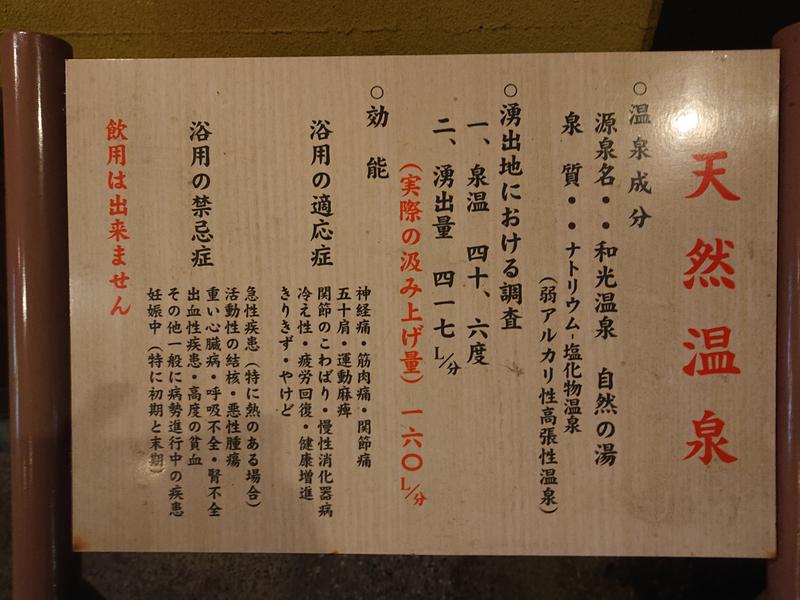 天然温泉
○温泉成分
源泉名・・和光温泉　自然の湯
泉　質・・ナトリウム-塩化物温泉
（弱アルカリ性高張性温泉）
○湧出地における調査
一、泉温　四十、六度
二、湧出量　四一七L/分
（実際の汲み上げ量）一六〇L/分
○効　能
浴用の適応症
神経痛・筋肉痛・関節痛
五十肩・運動麻痺
関節のこわばり・慢性消化器病
冷え性・疲労回復・健康増進
きりきず・やけど
浴用の禁忌症
急性疾患（特に熱のある場合）
活動性の結核・悪性腫瘍
重い心臓病・呼吸不全・腎不全
出血性疾患・高度の貧血
その他一般に病勢進行中の疾患
妊娠中（特に初期と末期）
飲用は出来ません